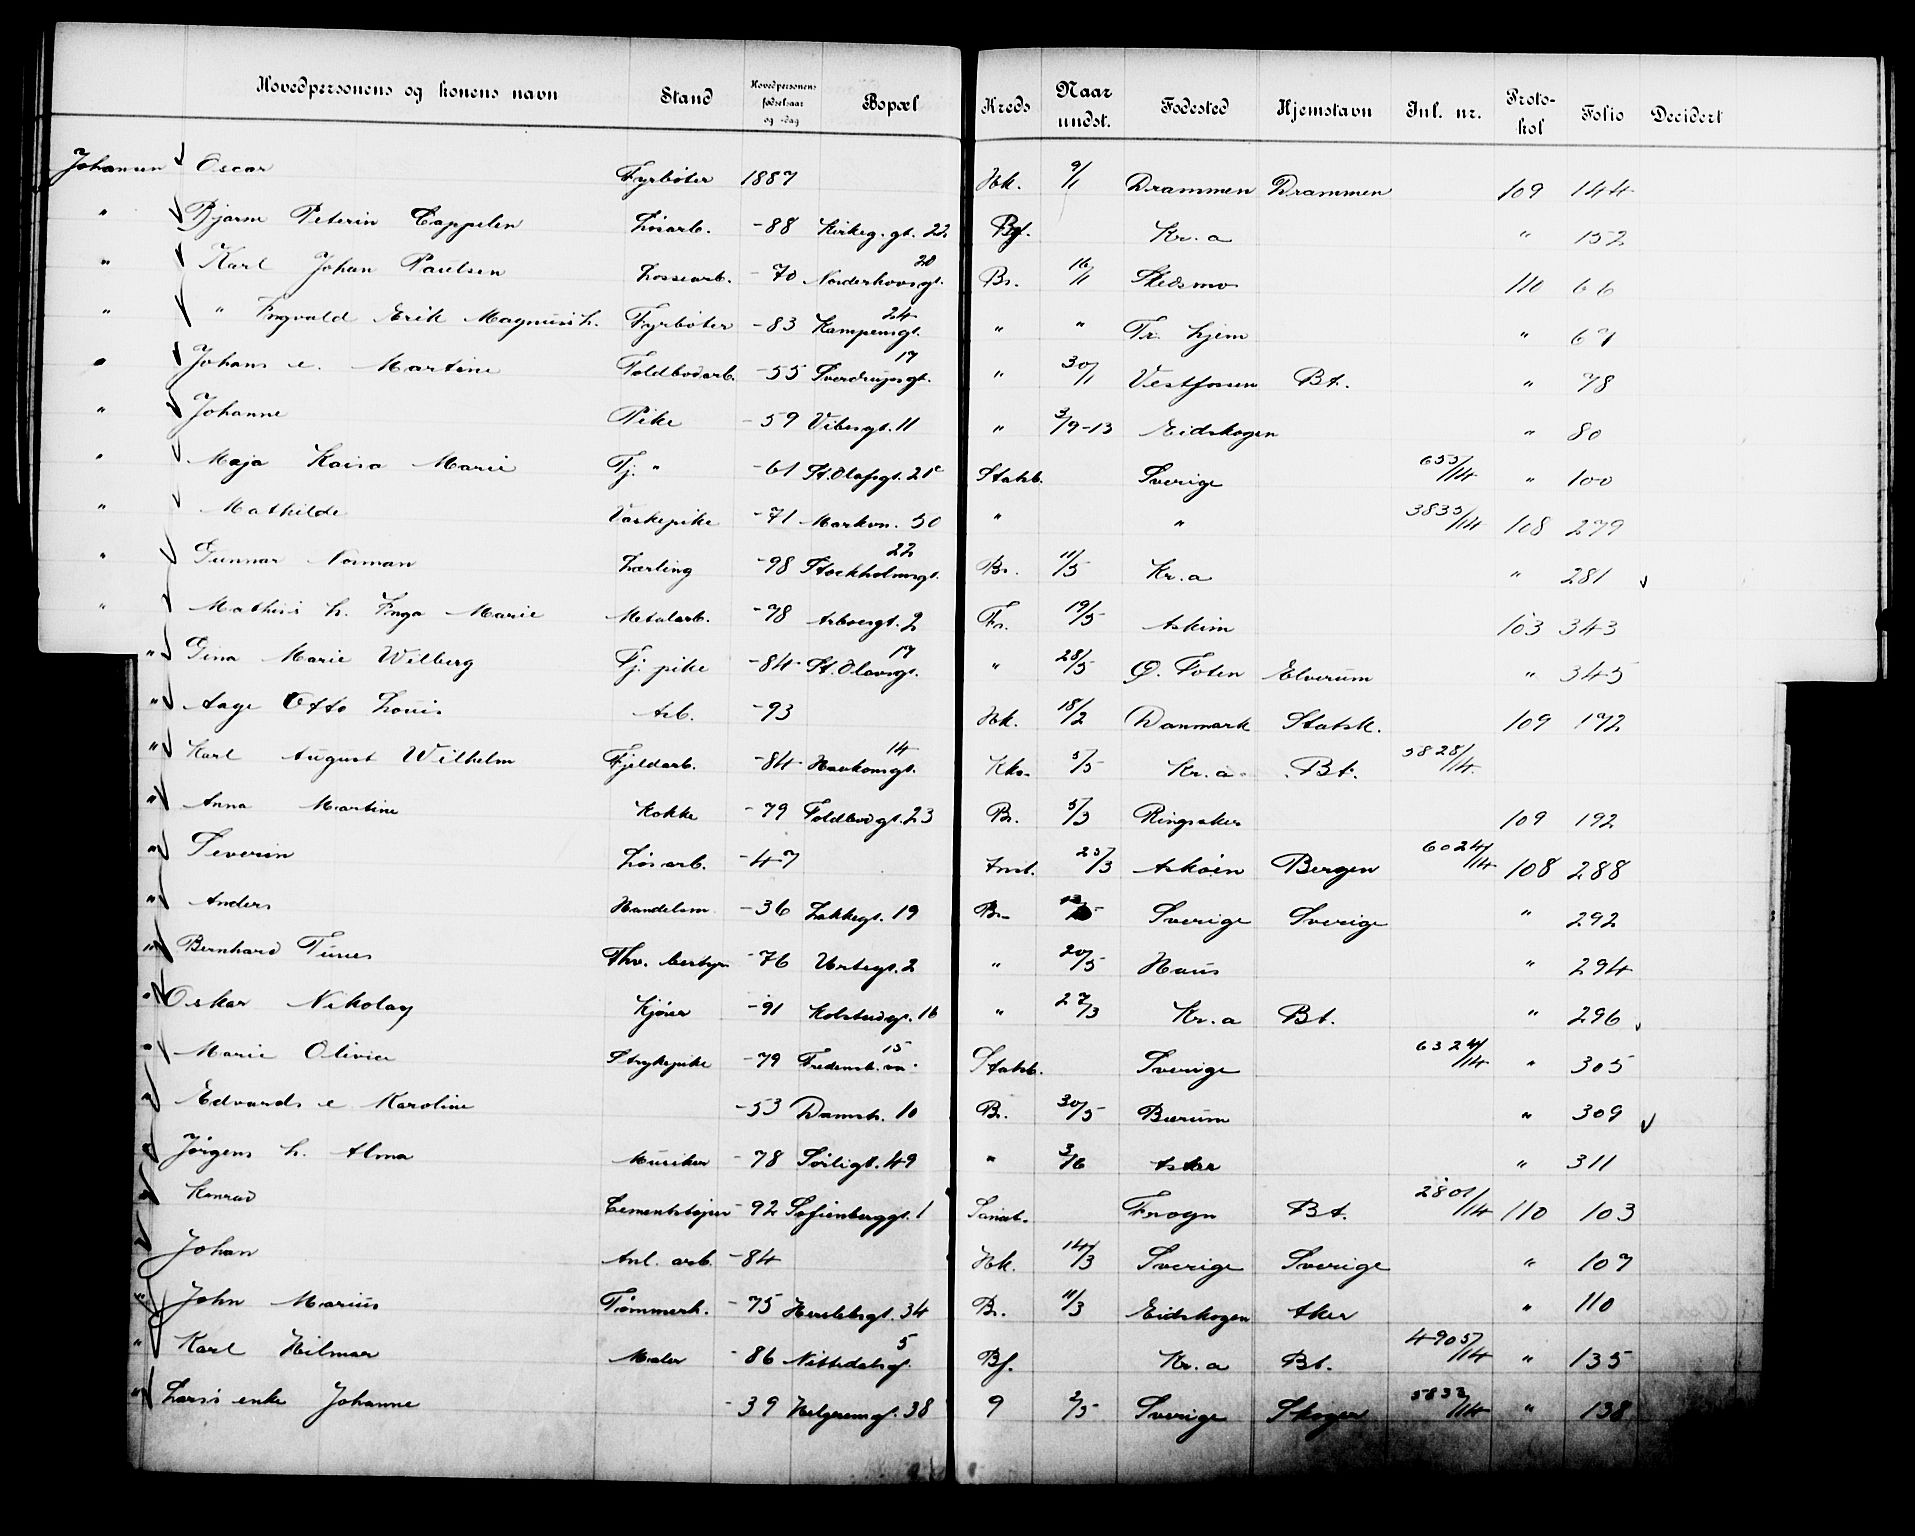 Hovedpersonens og konens navn Stand Hovedpersonens fødselsaar og -dag Bopæl Kreds Naar undst. Fødested Hjemstavn Jnl. nr. Protokol Folio Decidert
Johansen Oscar Fyrbøter 1887 Hk. 9/1 Drammen Drammen 109 144
" Bjarne Peterin Cappelen Løsarb. -88 Kirkeg.gt. 22 Bf. Kr.a " 152
" Karl Johan Paulsen Lossearb. -70 Norderhovsgt. 20 Br. 16/1 Skedsmo 110 66
" " Ingvald Erik Magnus's h. Fyrbøter -83 Kampensgt. 24 " " Tr. hjem " 67
" Johans e. Martine Toldbodarb. -55 Sverdrupsgt. 17 " 30/1 Vestfossen Bt. " 78
" Johanne Pike -59 Vibesgt. 11 " 3/9-13 Eidskogen " 80
" Maja Kaisa Marie Tj. " -61 St. Olafsgt. 21c Statsb. Sverige 655/14 " 100
" Mathilde Vaskepike -71 Markvn. 50 " " 3835/14 108 279
" Gunnar Norman Lærling -98 Stockholmsgt. 22 Br. 11/5 Kr.a " 281
" Mathis's h. Inga Marie Metalarb. -78 Arboesgt. 2 Fr. 19/5 Askim 103 343
" Gina Marie Wilberg Tj. pike -84 St. Olavsgt. 17 " 28/5 Ø. Toten Elverum " 345
" Aage Otto Louis Arb. -93 Hk. 18/2 Danmark Statsk. 109 172
" Karl August Wilhelm Fjeldarb. -84 Haakonsgt. 14 Kks. 5/5 Kr.a. Bt. 5828/14
" Anna Martine Kokke -79 Toldbodgt. 23 Br. 5/3 Ringsaker 109 192
" Severin Løsarb. -47 Anst. 25/3 Askøen Bergen 6024/14 108 288
" Anders Handelsm. -36 Lakkegt. 19 Br. Sverige Sverige " 292
" Bernhard Tunes Fhv. bestyr. -76 Urtegt. 2 " 20/5 Haus " 294
" Oskar Nikolay Kjører -91 Kolstadgt. 16 " 27/3 Kr.a Bt. " 296
" Marie Olivia Strykepike -79 Fredensb.vn. 15 Statsb. Sverige 6324/14 " 305
" Edvards e Karoline -53 Damstr. 10 Br. 30/5 Bærum " 309
" Jørgens h. Alma Musiker -78 Sørligt. 49 " 3/6 Asker " 311
" Konrad Cementstøper -92 Sofienberggt. 1 Frogn Bt. 2801/14 110 103
" Johan Anl. arb. -84 Hk. 14/3 Sverige Sverige " 107
" John Marius Tømmerh. -75 Herslebsgt. 34 Br. 11/3 Eidskogen Aker " 110
" Karl Hilmar Maler -86 Nittedalsgt. 5 Bf. Kr.a Bt. 4905/14 " 135
" Lars's enke Johanne -39 Helgesensgt. 38 9 2/5 Sverige Skoger 5832/14 " 138